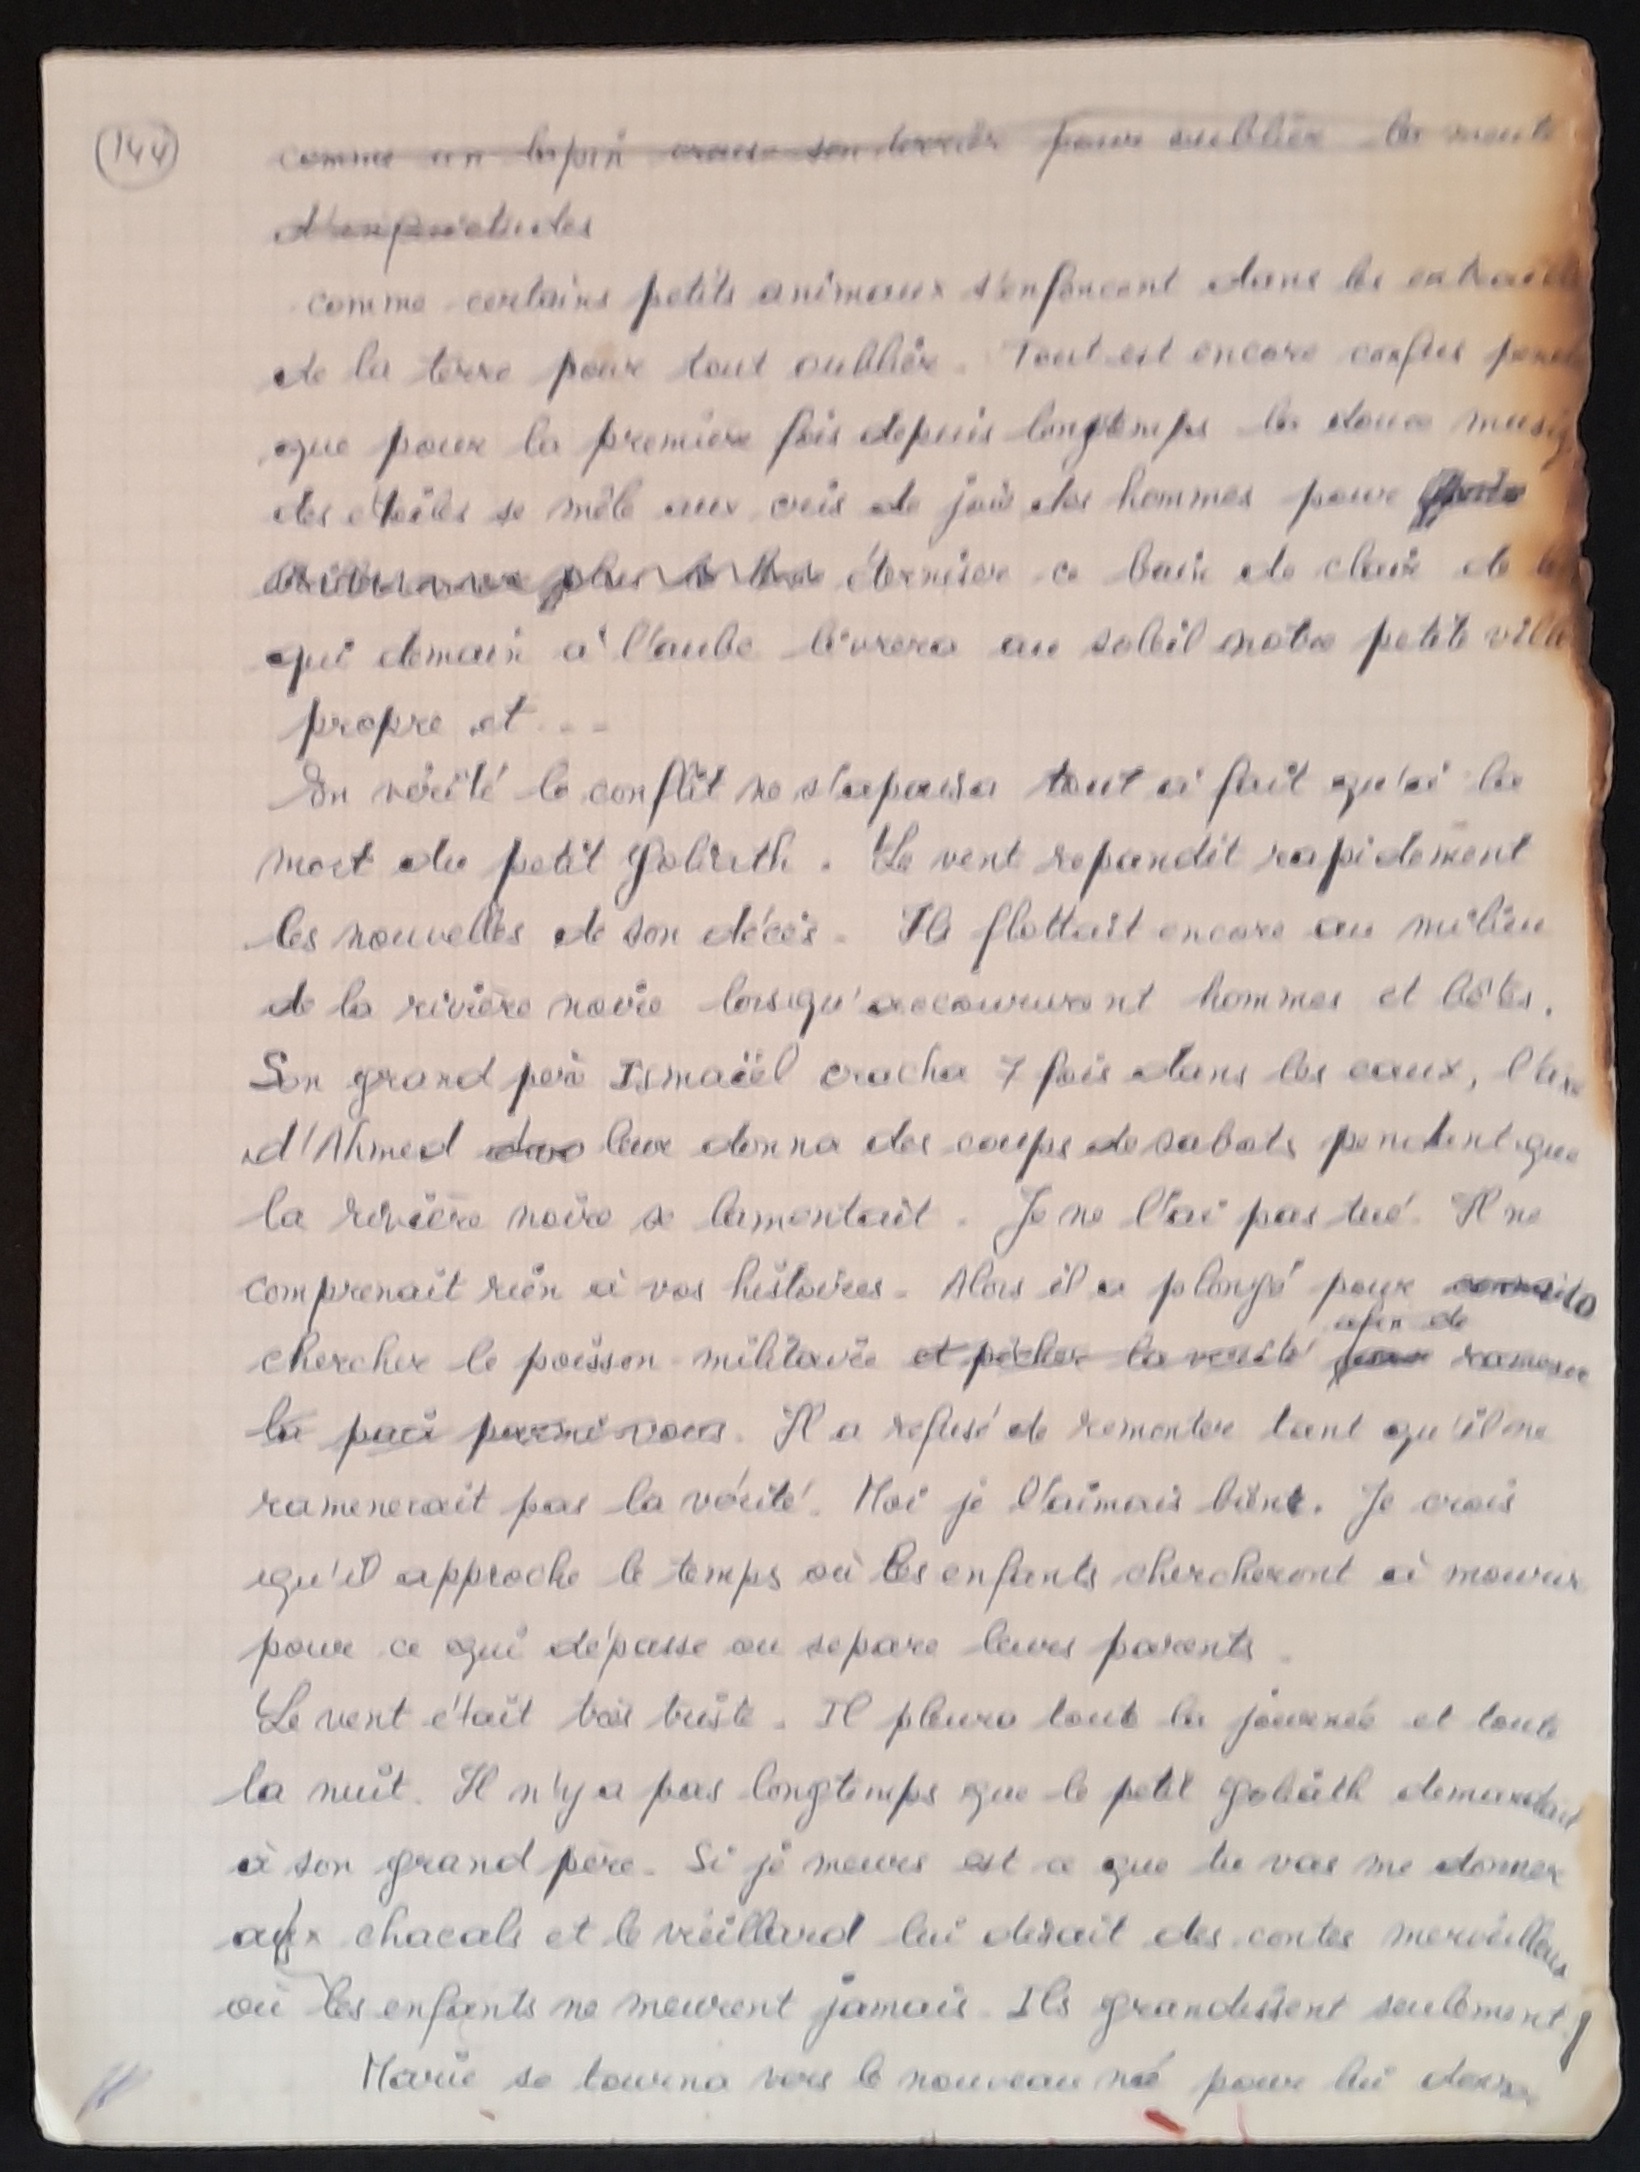 144
comme un lapin creuse son terrier pour oublier la meute
d'inquiétudes
comme certains petits animaux s'enfoncent dans les
de la terre pour tout oublier. Tout est encore confus
que pour la première fois depuis longtemps la douce
des étoiles se mêle aux cris de joie des hommes pour
éterniser ce bain de clair de
qui demain à l'aube livrera au soleil notre petite
propre et ...
En vérité le conflit ne s'apaisa tout à fait qu'à la
mort du petit Goliath. Le vent repandit rapidement
les nouvelles de son décès. Il flottait encore au milieu
de la rivière noire lorsqu'accoururent hommes et bêtes.
Son grand père Ismaïel cracha 7 fois dans les eaux,
d'Ahmed leur donna des coups de sabots pendant que
la rivière noire se lamentait. Je ne l'ai pas tué. Il ne
comprenait rien à vos histoires. Alors il a plongé pour
chercher le poisson militaire et pêcher la vérité pour afin de ramener
la paix parmi vous. Il a refusé de remonter tant qu'il ne
ramenerait pas la vérité. Moi je l'aimais bien. Je crois
qu'il approche le temps où les enfants chercheront à mourir
pour ce qui dépasse ou separe leurs parents.
Le vent était très triste. Il pleura toute la journée et toute
la nuit. Il n'y a pas longtemps que le petit Goliath demandait
à son grand père. Si je meurs est ce que tu vas me donner
aux chacals et le vieillard lui disait des contes merveilleux
où les enfants ne meurent jamais. Ils grandissent seulement!
Marie se tourna vers le nouveau né pour lui